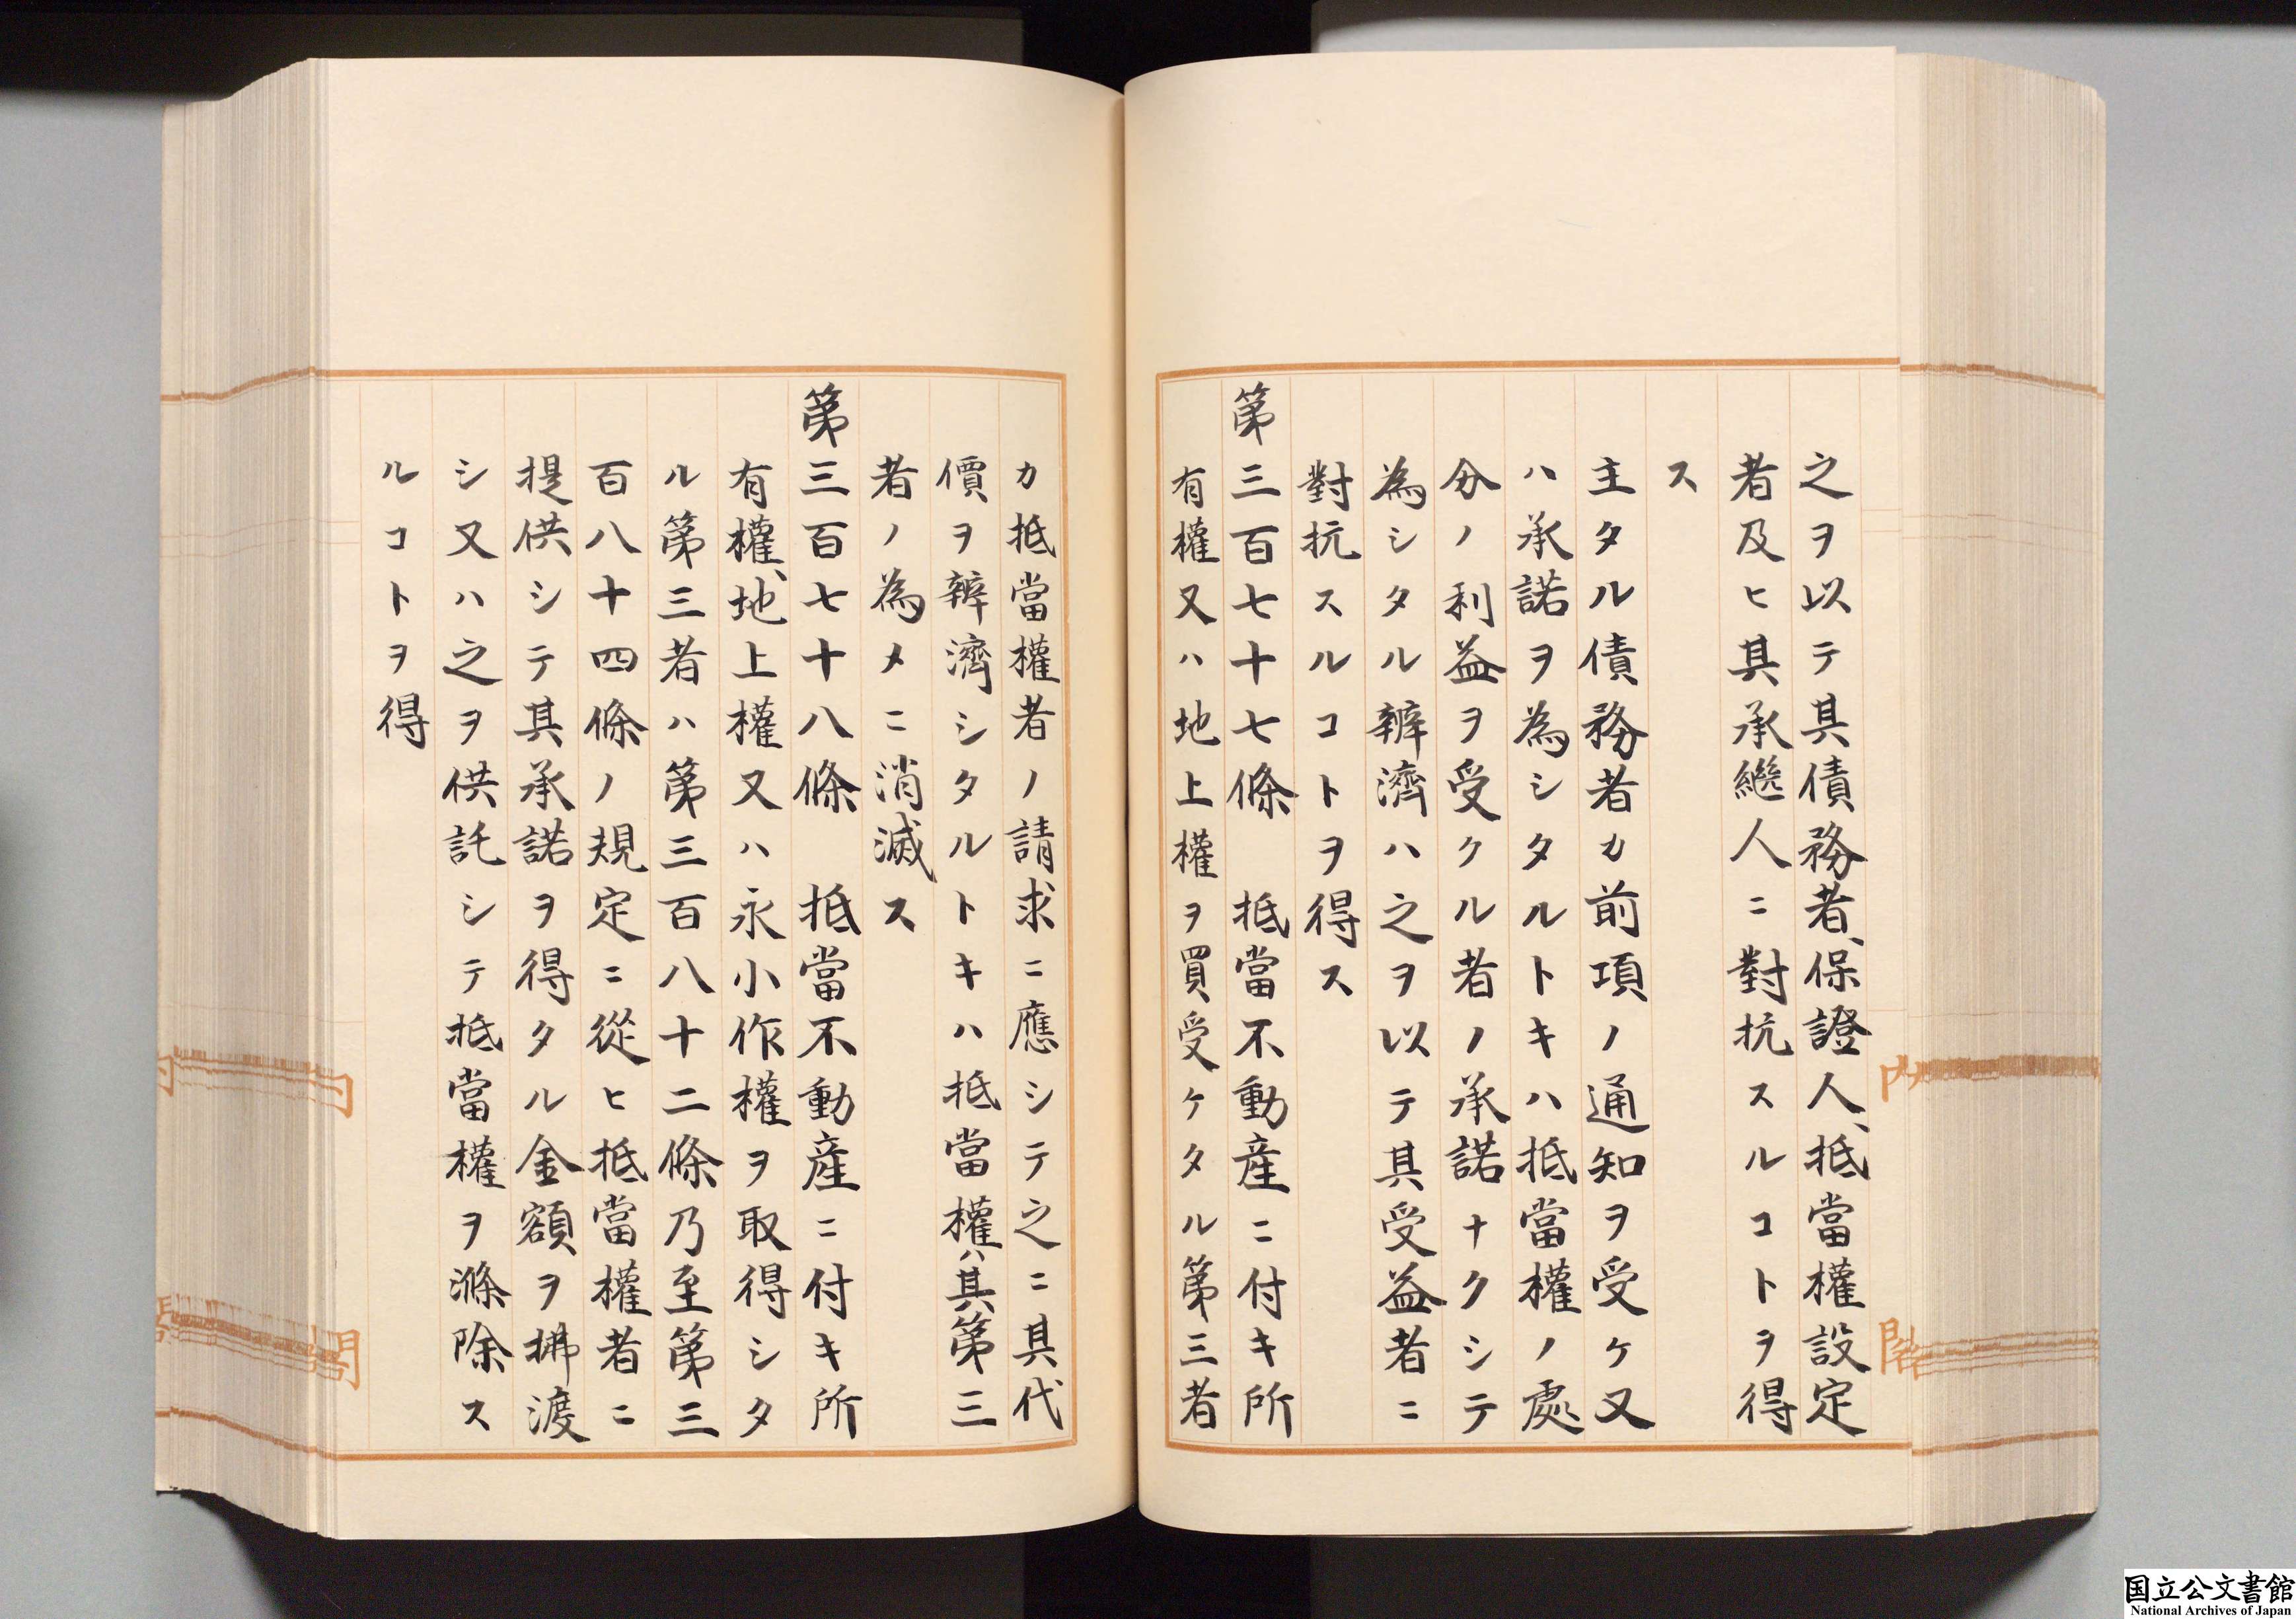 之ヲ以テ其債務者、保證人、抵當權設定
者及ヒ其承繼人ニ對抗スルコトヲ得
ス
主タル債務者カ前項ノ通知ヲ受ケ又
ハ承諾ヲ為シタルトキハ抵當權ノ處
分ノ利益ヲ受クル者ノ承諾ナクシテ
為シタル辨濟ハ之ヲ以テ其受益者ニ
對抗スルコトヲ得ス
第三百七十七條　抵當不動産ニ付キ所
有權又ハ地上權ヲ買受ケタル第三者
カ抵當權者ノ請求ニ應シテ之ニ其代
價ヲ辨濟シタルトキハ抵當權ハ其第三
者ノ為メニ消滅ス
第三百七十八條　抵當不動産ニ付キ所
有權、地上權又ハ永小作權ヲ取得シタ
ル第三者ハ第三百八十二條乃至第三
百八十四條ノ規定ニ從ヒ抵當權者ニ
提供シテ其承諾ヲ得タル金額ヲ拂渡
シ又ハ之ヲ供託シテ抵當權ヲ滌除ス
ルコトヲ得
国立公文書館
National Archives of Japan